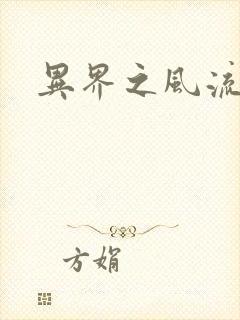 異界之風流
方娟